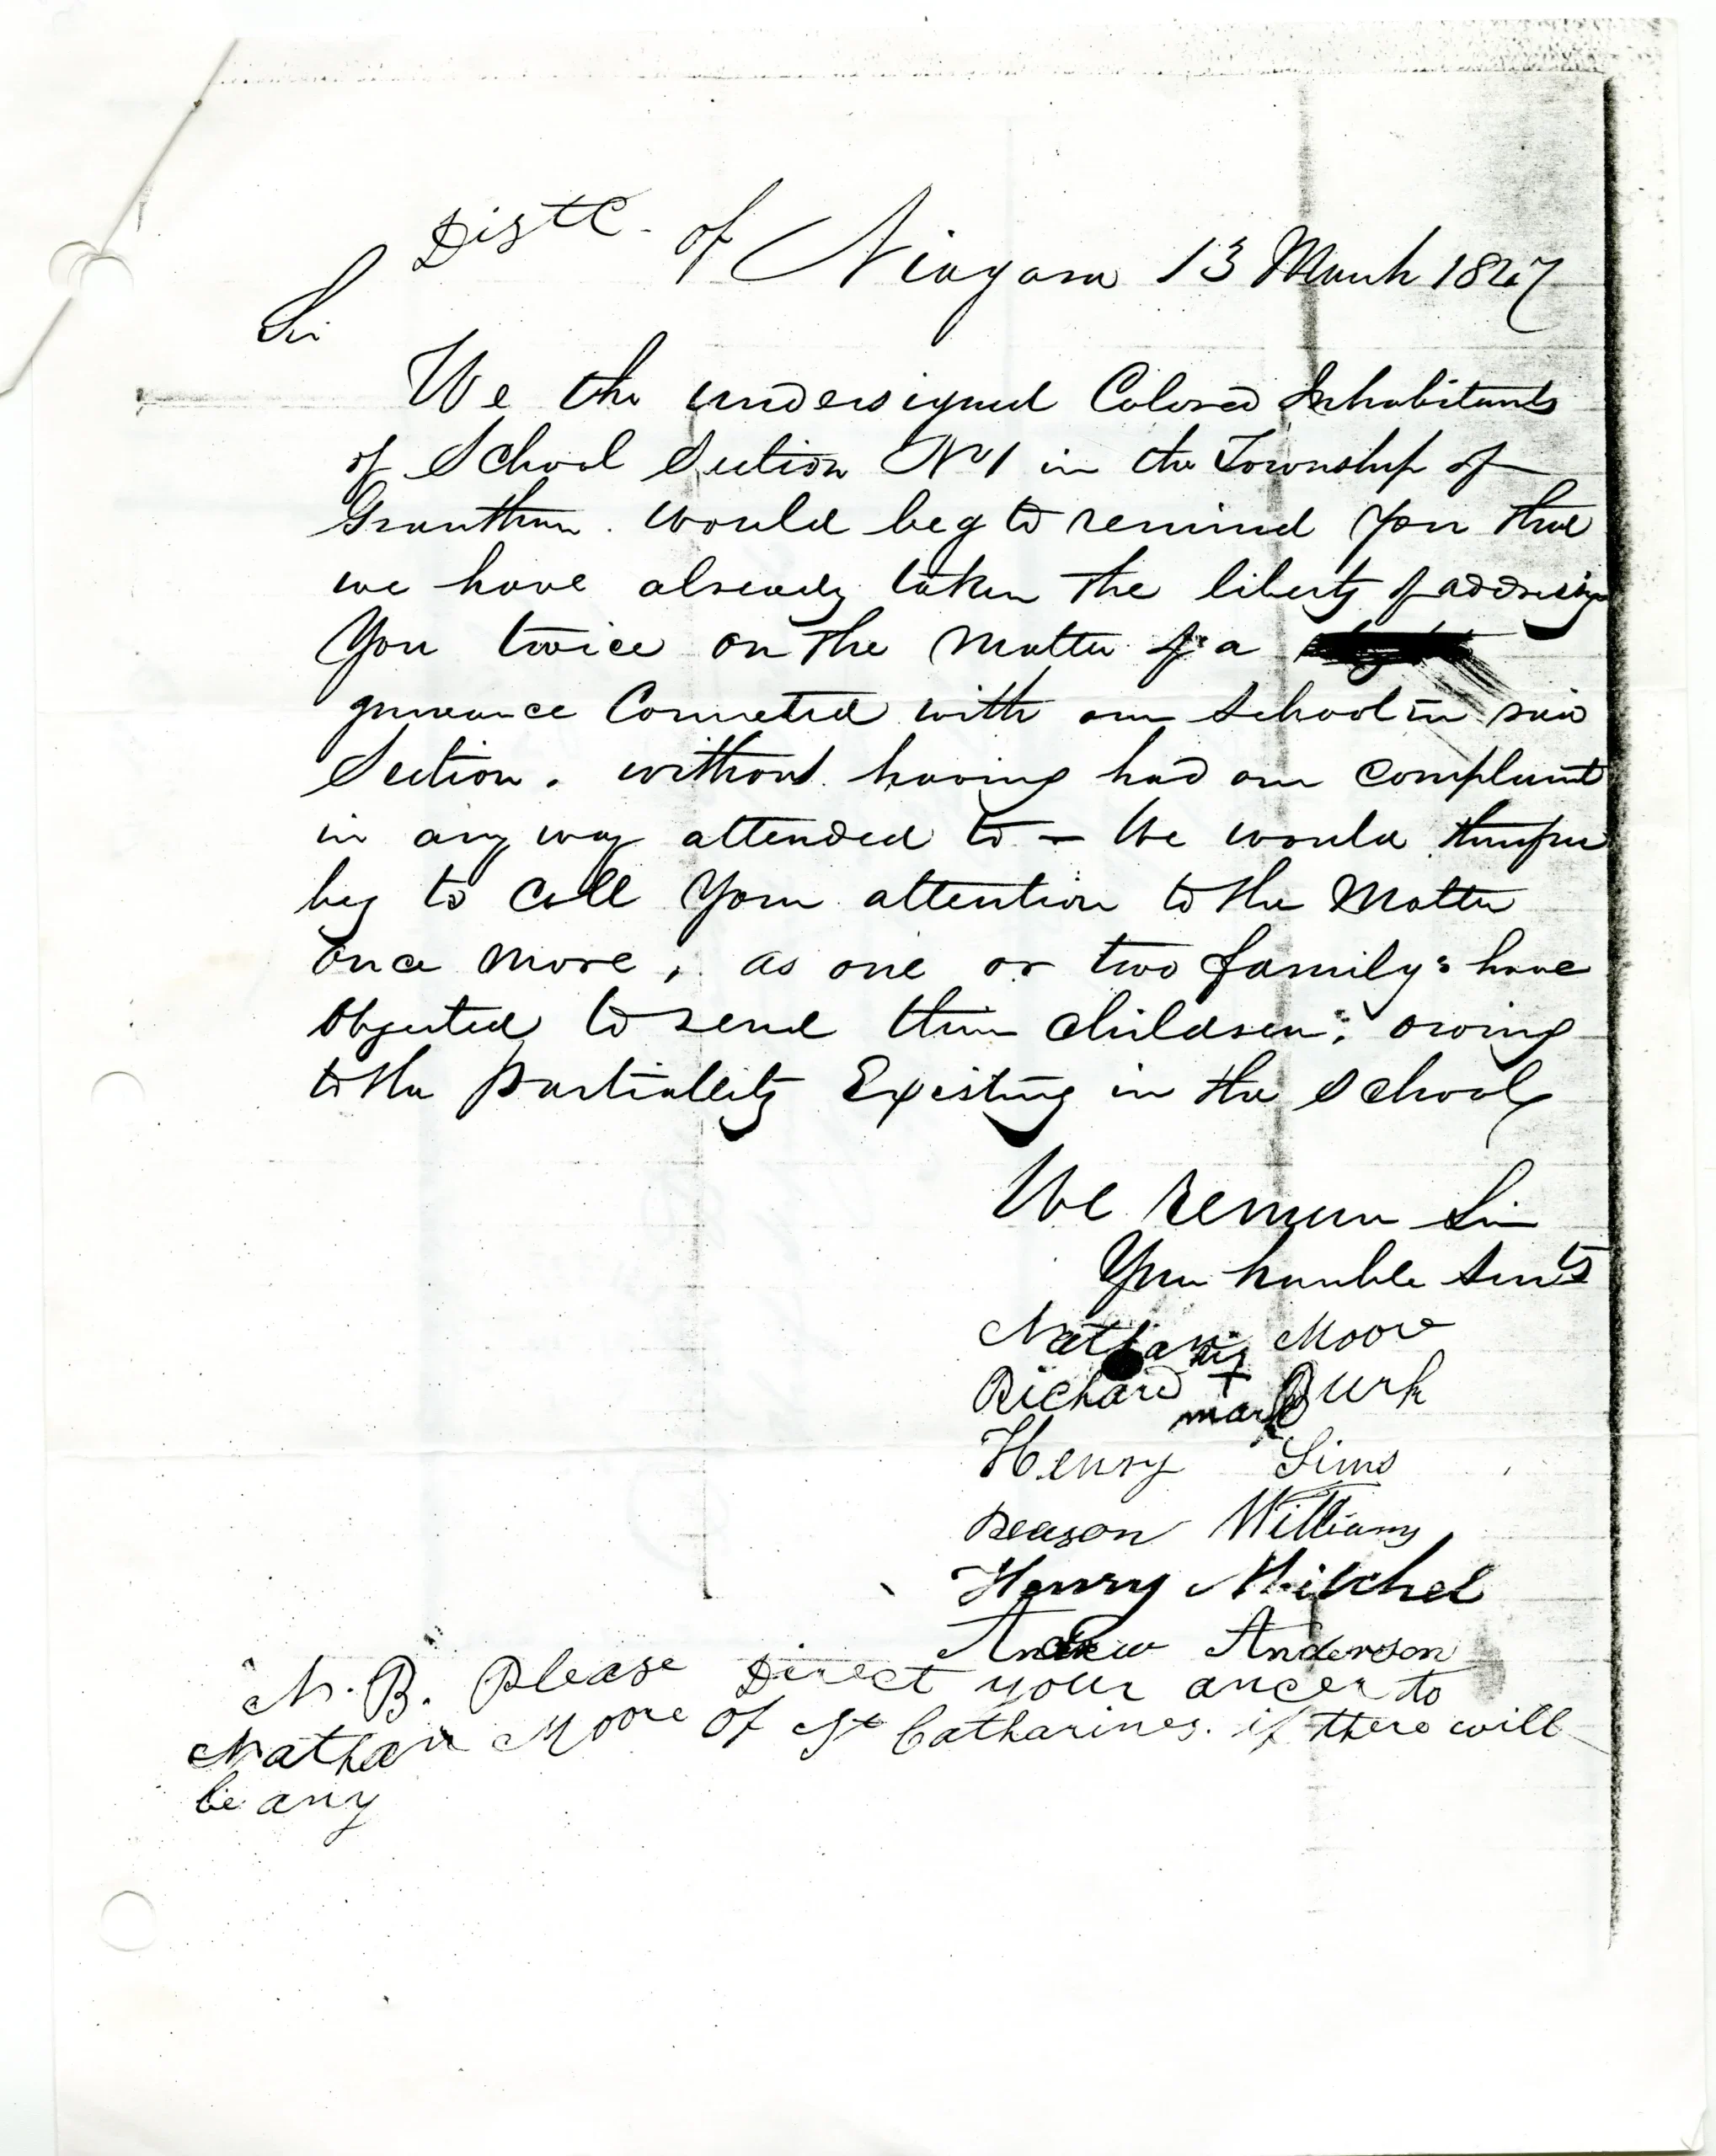 Distc. of Niagara 13 March 1847
Sir
We the undersigned Colored Inhabitants
of School Section No 1 in the Township of
Grantham. would beg to remind You that
we have already taken the liberty of addressing
You twice on the Matter of a
grievance Connected with our School in said
Section. without having had our Complaint
in any way attended to – We would therefore
beg to Call Your attention to the Matter
once more, as one or two family's have
Objected to send their children; owing
to the partiallity Existing in the School
We remain Sir
Your humble Servts
Nathan Moore
his
Richard + Burk
mark
Henry Sims
Reason Williams
Henry Mitchel
Andrew Anderson
N. B. Please Direct your ancer to
Nathan Moore of St Catharines. if there will
be any